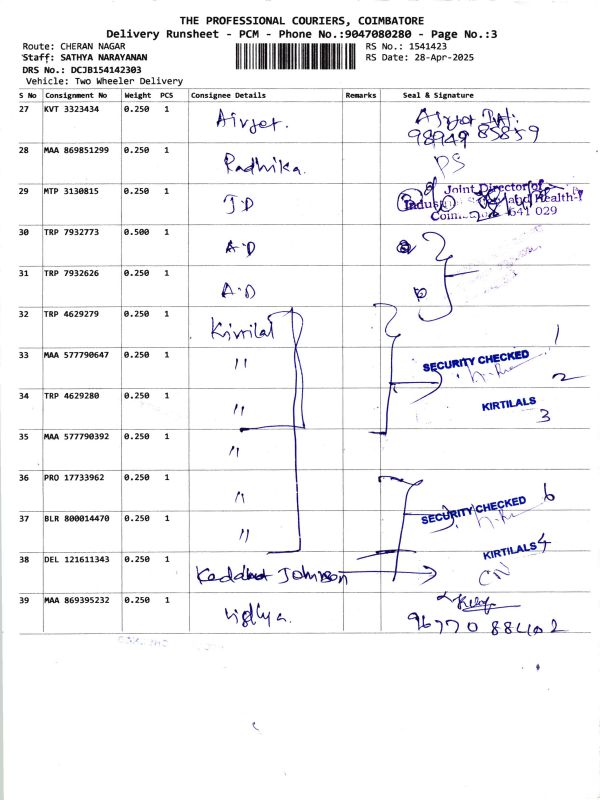 THE PROFESSIONAL COURIERS, COIMBATORE
Delivery Runsheet - PCM - Phone No.:9047080280 - Page No.:3
Route: CHERAN NAGAR
RS No.: 1541423
Staff: SATHYA NARAYANAN
RS Date: 28-Apr-2025
DRS No.: DCJB154142303
Vehicle: Two Wheeler Delivery
S No Consignment No Weight PCS Consignee Details Remarks Seal & Signature
27 KVT 3323434 0.250 1 Airjet.
98949 85859
28 MAA 869851299 0.250 1 Radhika. PS
29 MTP 3130815 0.250 1 JD
Joint Director of
and Health-I
641 029
30 TRP 7932773 0.500 1 A.D
31 TRP 7932626 0.250 1 A.D
32 TRP 4629279 0.250 1 Kirtilal
1
33 MAA 577790647 0.250 1 "
SECURITY CHECKED
2
34 TRP 4629280 0.250 1 "
KIRTILALS
3
35 MAA 577790392 0.250 1 "
36 PRO 17733962 0.250 1 "
SECURITY CHECKED 6
37 BLR 800014470 0.250 1 "
KIRTILALS 4
38 DEL 121611343 0.250 1 Johnson
39 MAA 869395232 0.250 1 Vidhya.
96770 88402